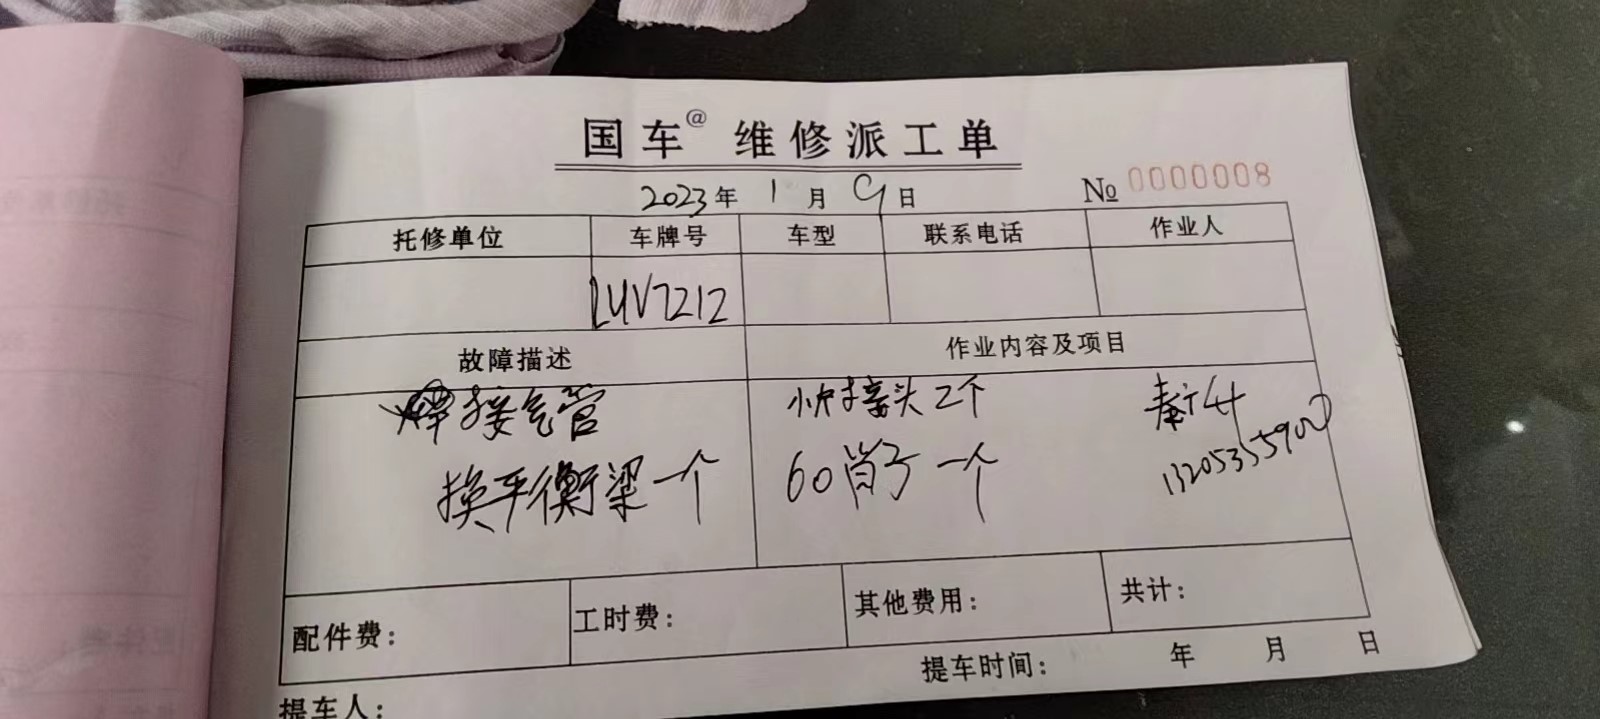 国车@ 维修派工单
2023年 1月 9日 № 0000008
托修单位 车牌号 车型 联系电话 作业人
LUV7212
故障描述 作业内容及项目
接气管 快接头2个
换平衡梁一个 60肖子 一个
13205355900
配件费： 工时费： 其他费用： 共计：
提车时间： 年 月 日
提车人：